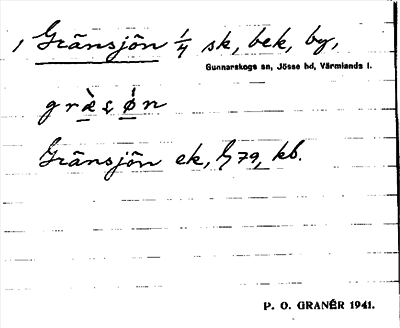 , Gränsjön 1/4 sk, bek, by,
Gunnarskogs sn, Jösse hd, Värmlands l.
græ̀sø̀n
Gränsjön ek, G79, kb.
P. O. GRANÉR 1941.